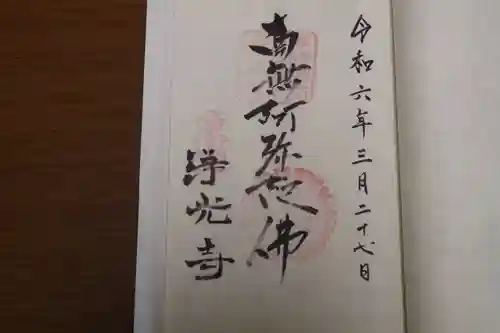 令和六年三月二十七日
南無阿弥陀佛
浄光寺